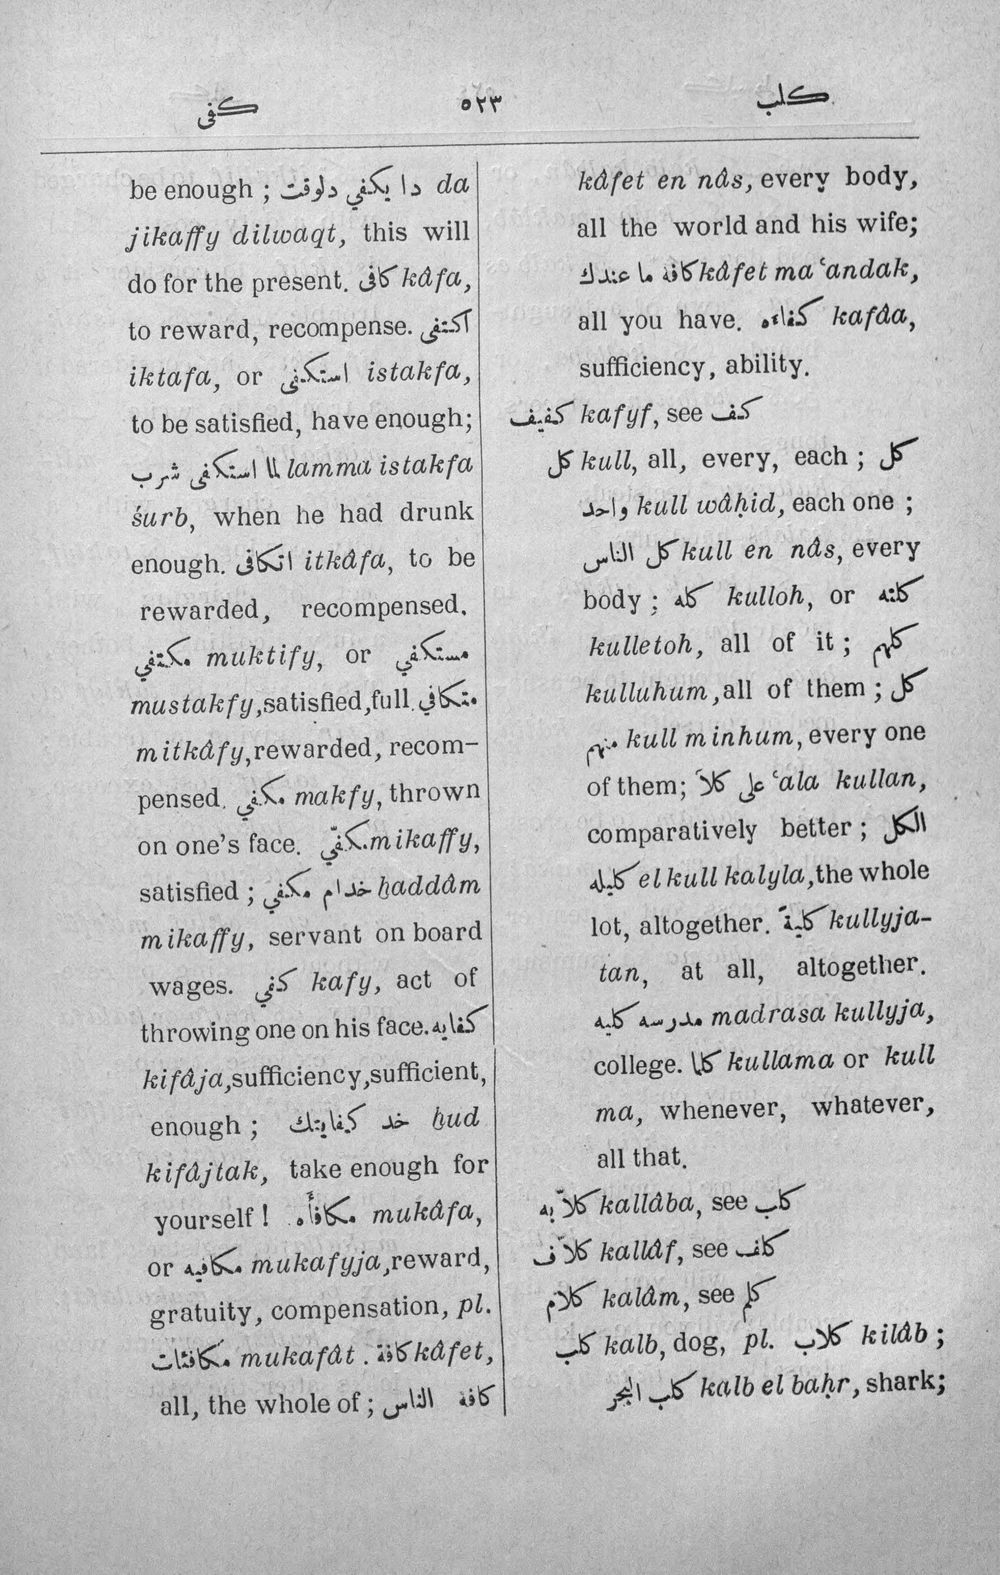 كفى ٥٢٣ كلب
be enough ; دا يكفي دلوقت da
jikaffy dilwaqt, this will
do for the present. كافى kâfa,
to reward, recompense. اكتفى
iktafa, or استكفى istakfa,
to be satisfied, have enough;
لما استكفى شرب lamma istakfa
śurb, when he had drunk
enough. اتكافى itkâfa, to be
rewarded, recompensed.
مكتفي muktify, or مستكفي
mustakfy, satisfied, full. متكافي
mitkâfy, rewarded, recom-
pensed. مكفي makfy, thrown
on one's face. مكفّي mikaffy,
satisfied ; خدام مكفي ḫaddâm
mikaffy, servant on board
wages. كفي kafy, act of
throwing one on his face. كفايه
kifâja, sufficiency, sufficient,
enough ; خد كفايتك ḫud
kifâjtak, take enough for
yourself ! مكافأه mukâfa,
or مكافيه mukafyja, reward,
gratuity, compensation, pl.
مكافئات mukafât . كافة kâfet,
all, the whole of ; كافة الناس
kâfet en nâs, every body,
all the world and his wife;
كافة ما عندك kâfet ma ʿandak,
all you have. كفاءه kafâa,
sufficiency, ability.
كفيف kafyf, see كف
كل kull, all, every, each ; كل
واحد kull wâḥid, each one ;
كل الناس kull en nâs, every
body ; كله kulloh, or كلته
kulletoh, all of it ; كلهم
kulluhum, all of them ; كل
منهم kull minhum, every one
of them; على كلاً ʿala kullan,
comparatively better ; الكل
كليله el kull kalyla, the whole
lot, altogether. كليةً kullyja-
tan, at all, altogether.
مدرسه كليه madrasa kullyja,
college. كلما kullama or kull
ma, whenever, whatever,
all that.
كلاّبه kallâba, see كلب
كلاّف kallâf, see كلف
كلام kalâm, see كلم
كلب kalb, dog, pl. كلاب kilâb ;
كلب البحر kalb el baḥr, shark;